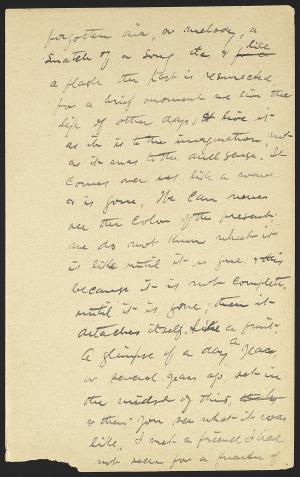 forgotten air, or melody, a
snatch of a song etc & like
a flash the past is resurrected
for a brief moment we live the
life of other days, & live it
as it is to the imagination, not
as it was to the dull sense. It
comes over us like a wave
& is gone. We can never
see the color of the present;
we do not know what it
is like until it is gone, & this
because it is not complete
until it is gone; then it
detaches itself like a fruit.
A glimpse of a day a year,
or several years ago, set in
the midst of this,
& then you see what it was
like. I met a friend I had
not seen for a quarter of